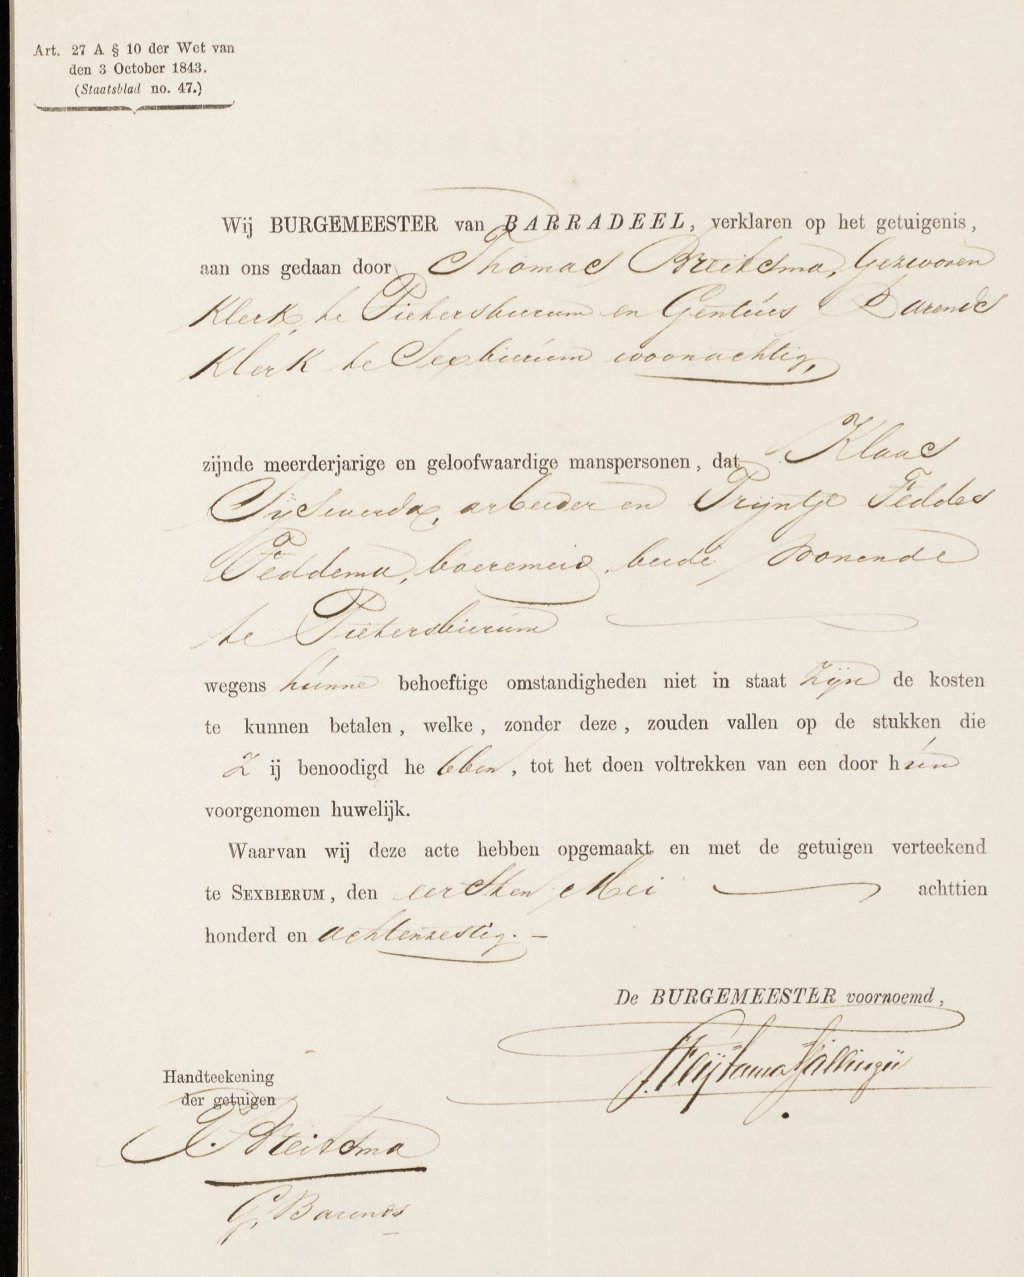 Art. 27 A § 10 der Wet van
den 3 October 1843.
(Staatsblad no. 47.)
Wij BURGEMEESTER van BARRADEEL, verklaren op het getuigenis,
aan ons gedaan door Thomas Breitsma, Gezworen
Klerk, te Pietersbierum en Gentius Barends
Klerk te Sexbierum woonachtig,
zijnde meerderjarige en geloofwaardige manspersonen, dat Klaas
Sijswerda, arbeider en Trijntje Feddes
Feddema, boeremeid, beide wonende
te Pietersbierum
wegens hunne behoeftige omstandigheden niet in staat zijn de kosten
te kunnen betalen, welke, zonder deze, zouden vallen op de stukken die
Zij benoodigd hebben, tot het doen voltrekken van een door hun
voorgenomen huwelijk.
Waarvan wij deze acte hebben opgemaakt en met de getuigen verteekend
te SEXBIERUM, den eersten Mei achttien
honderd en achtenzestig. —
De BURGEMEESTER voornoemd,
Handteekening
der getuigen
T. Breitsma
G. Barends